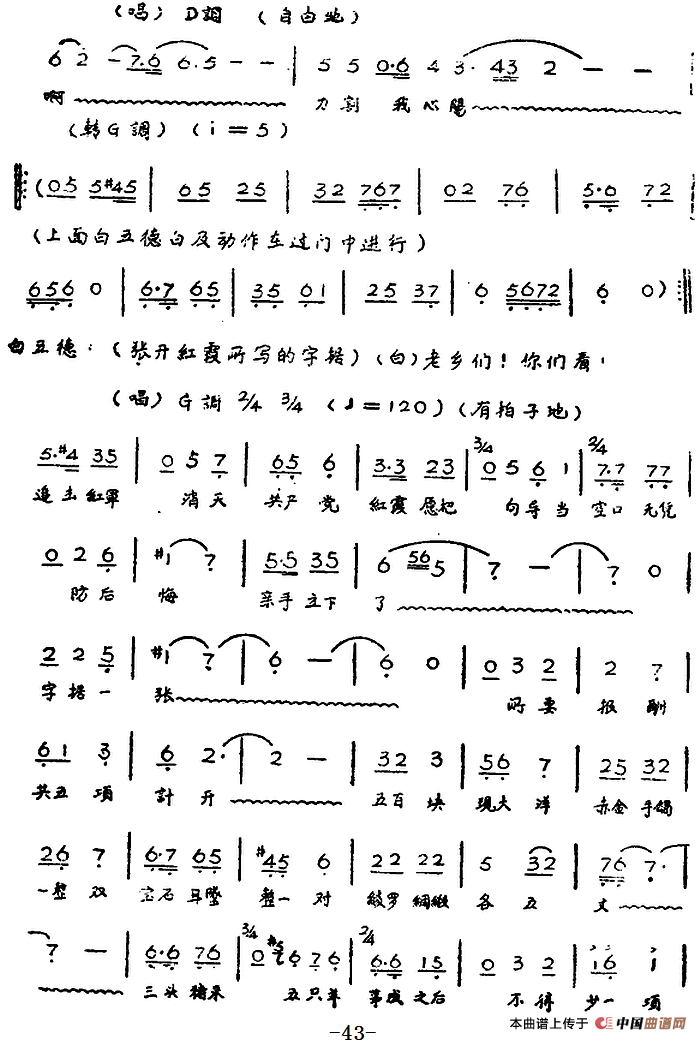 (唱) D調 (自由地)
6 2 - 7·6 6·5 - - | 5 5 0·6 4 3· 43 2 - -
啊 刀割 我心腸
(轉G調) (i=5)
(05 5#45 | 65 25 | 32 767 | 02 76 | 5·6 72
(上面白五德白及动作在过门中进行)
656 0 | 6·7 65 | 35 61 | 25 37 | 6 5672 | 6 0)
白五德: (张开紅霞所写的字据) (白) 老乡们! 你们看!
(唱) G調 2/4 3/4 (♩=120) (有拍子地)
5·#4 35 | 0 5 7 | 65 6 | 3·3 23 | 3/4 0 5 6 1 | 2/4 7·7 77
追击紅軍 消灭 共产党 紅霞愿把 向导当 空口无凭
0 2 6 | #1 7 | 5·5 35 | 6 56 5 | 7 - | 7 0
防后 悔 亲手立下 了
2 2 5 | #1 7 | 6 - | 6 0 | 0 3 2 | 2 7
字据一 张 所要 报酬
6 1 3 | 6 2· | 2 - | 32 3 | 56 7 | 25 32
共五項 計开 五百块 现大洋 赤金手镯
26 7 | 6·7 65 | #45 6 | 22 22 | 5 32 | 76 7·
一整双 宝石耳墜 整一对 綾罗綢緞 各五 丈
7 - | 6·6 76 | 3/4 0 6 7 6 | 2/4 6·6 15 | 0 3 2 | i6 i
三头猪来 五只羊 事成之后 不得 少一項
本曲谱上传于 中国曲谱网
-43-